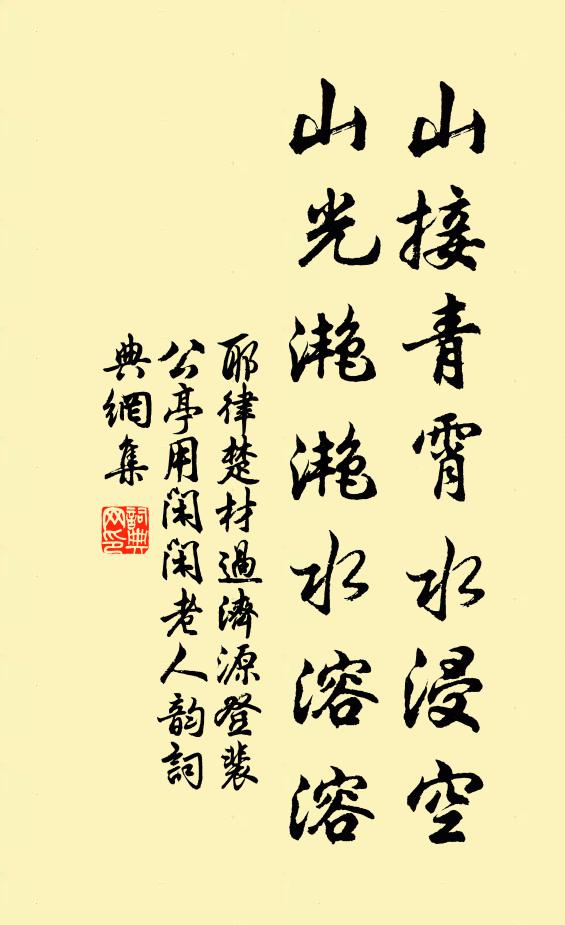 山接青霄水浸空
山光滟滟水溶溶
耶律楚材過濟源登裴
公亭用闲闲老人韵詞
典網集
詞典网印